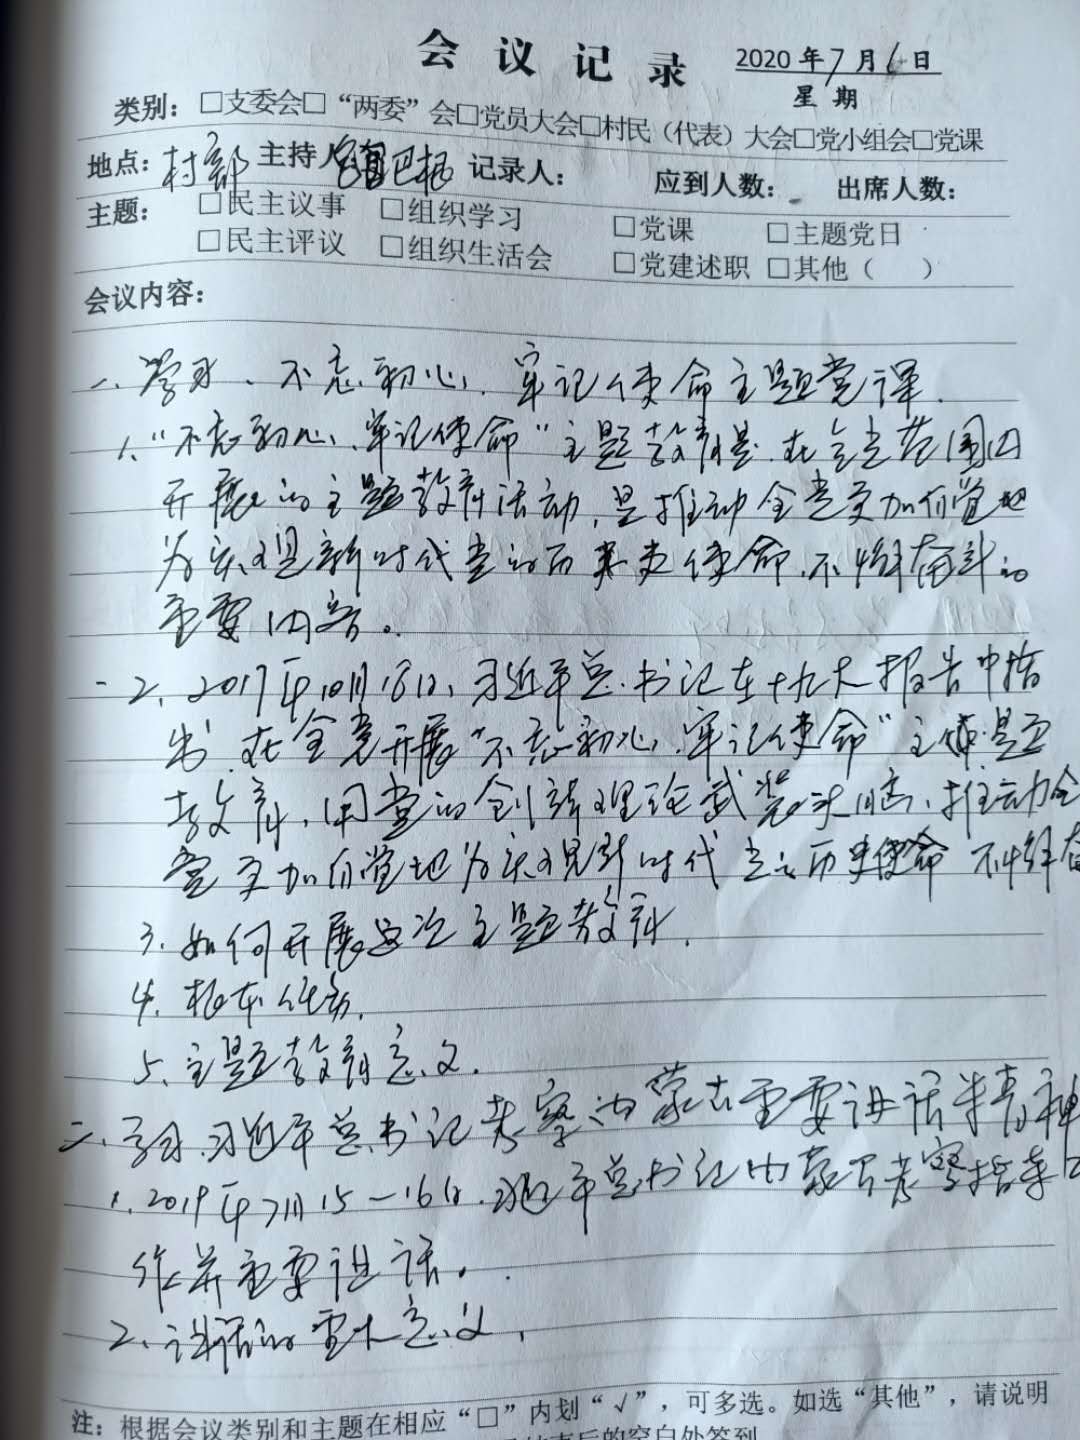 会议记录 2020年7月6日
星期
类别：□支委会□“两委”会□党员大会□村民（代表）大会□党小组会□党课
地点：村部 主持人 记录人： 应到人数： 出席人数：
主题：□民主议事 □组织学习 □党课 □主题党日
□民主评议 □组织生活会 □党建述职 □其他（ ）
会议内容：
一、学习、不忘初心，牢记使命主题党课.
1、“不忘初心、牢记使命”主题教育是.在全党范围内
开展的主题教育活动，是推动全党更加自觉地
为实现新时代党的历史使命.不懈奋斗的
重要内容。
2、2017年10月18日，习近平总书记在十九大报告中指
出 在全党开展“不忘初心、牢记使命”主题
教育，用党的创新理论武装头脑，推动全
党更加自觉地为实现新时代党的历史使命 不懈奋
3、如何开展这次主题教育.
4、根本任务.
5、主题教育意义.
二、学习.习近平总书记考察内蒙古重要讲话精神
1、2019年7月15-16日.习近平总书记内蒙古考察指导工
作并重要讲话。
2、讲话的重大意义，
注：根据会议类别和主题在相应“□”内划“√”，可多选。如选“其他”，请说明
后的空白处签到